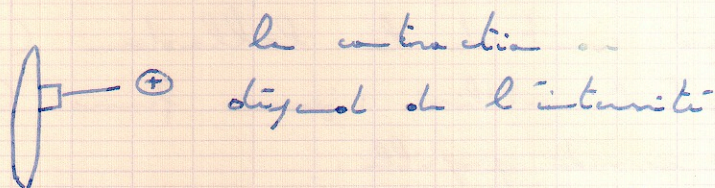 la contraction
⊕ dépend de l'intensité